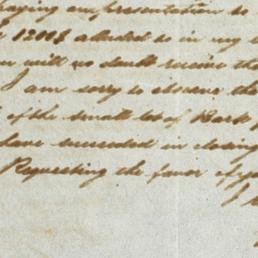 paying on presentation to
12008 alluded to in my
will no doubt receive the
I am sorry to observe the
of the small lot of Bark
have succeeded in closing
Requesting the favor of
I